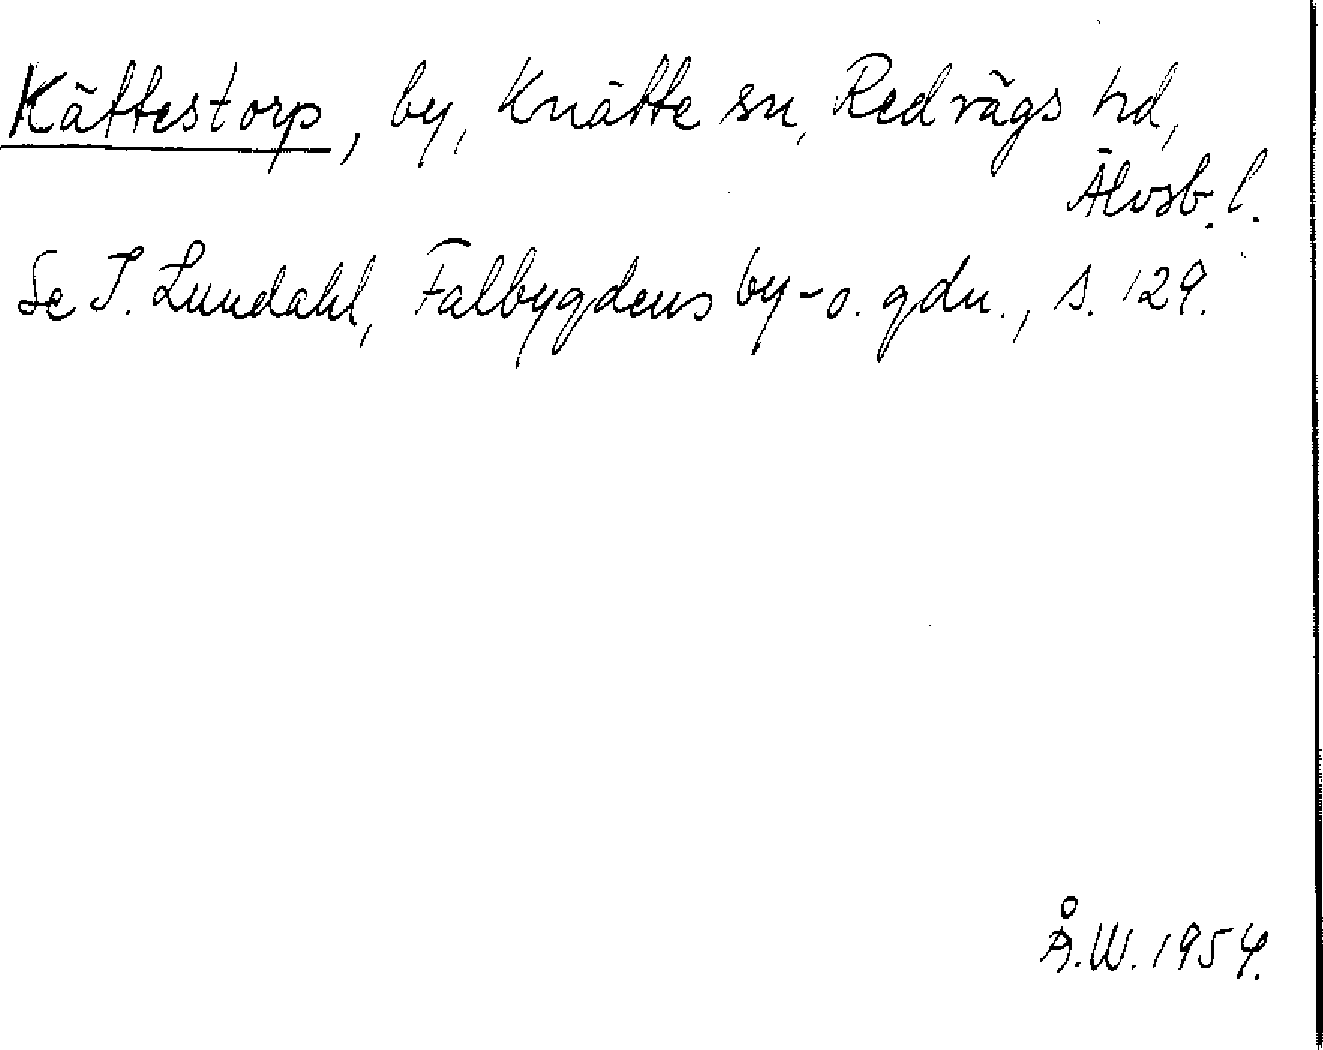 Kättestorp, by, Knätte sn, Redvägs hd,
Älvsb. l.
Se I. Lundahl, Falbygdens by- o. gdn., s. 129.
Å.W. 1954.